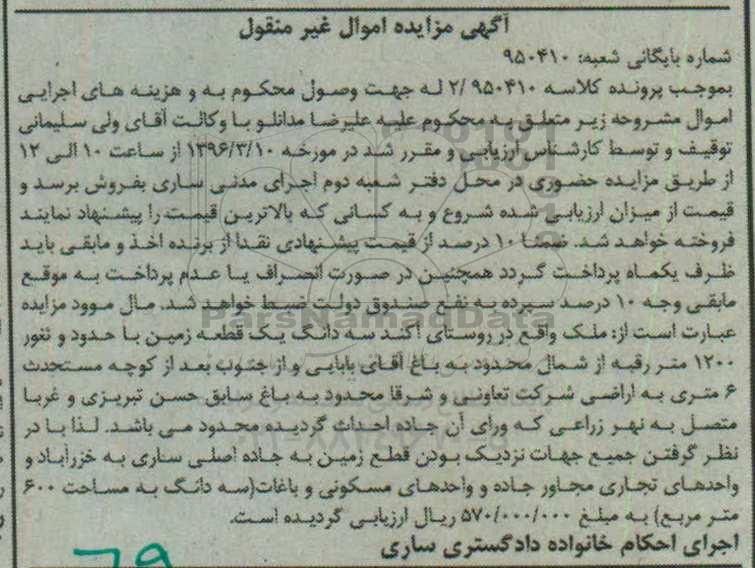 آگهی مزایده اموال غیر منقول
شماره بایگانی شعبه: ۹۵۰۴۱۰
بموجب پرونده کلاسه ۹۵۰۴۱۰ /۲ له جهت وصول محکوم به و هزینه های اجرایی
اموال مشروحه زیر متعلق به محکوم علیه علیرضا مدانلو با وکالت آقای ولی سلیمانی
توقیف و توسط کارشناس ارزیابی و مقرر شد در مورخه ۱۳۹۶/۳/۱۰ از ساعت ۱۰ الی ۱۲
از طریق مزایده حضوری در محل دفتر شعبه دوم اجرای مدنی ساری بفروش برسد و
قیمت از میزان ارزیابی شده شروع و به کسانی که بالاترین قیمت را پیشنهاد نمایند
فروخته خواهد شد. ضمنا ۱۰ درصد از قیمت پیشنهادی نقدا از برنده اخذ و مابقی باید
ظرف یکماه پرداخت گردد همچنین در صورت انصراف یا عدم پرداخت به موقع
مابقی وجه ۱۰ درصد سپرده به نفع صندوق دولت ضبط خواهد شد. مال موود مزایده
عبارت است از: ملک واقع در روستای آکند سه دانگ یک قطعه زمین با حدود و ثغور
۱۲۰۰ متر رقبه از شمال محدود به باغ آقای بابایی و از جنوب بعد از کوچه مستحدث
۶ متری به اراضی شرکت تعاونی و شرقا محدود به باغ سابق حسن تبریزی و غربا
متصل به نهر زراعی که ورای آن جاده احداث گردیده محدود می باشد. لذا با در
نظر گرفتن جمیع جهات نزدیک بودن قطع زمین به جاده اصلی ساری به خزرآباد و
واحدهای تجاری مجاور جاده و واحدهای مسکونی و باغات(سه دانگ به مساحت ۶۰۰
متر مربع) به مبلغ ۵۷۰/۰۰۰/۰۰۰ ریال ارزیابی گردیده است.
اجرای احکام خانواده دادگستری ساری
ParsNamadData